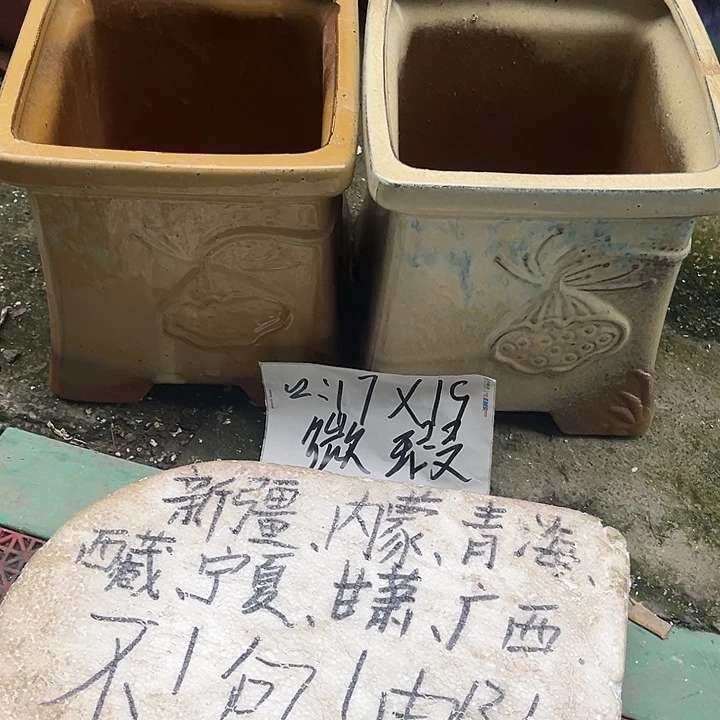 口:17×19
微瑕
新疆、内蒙、青海、
西藏、宁夏、甘肃、广西.
不包邮